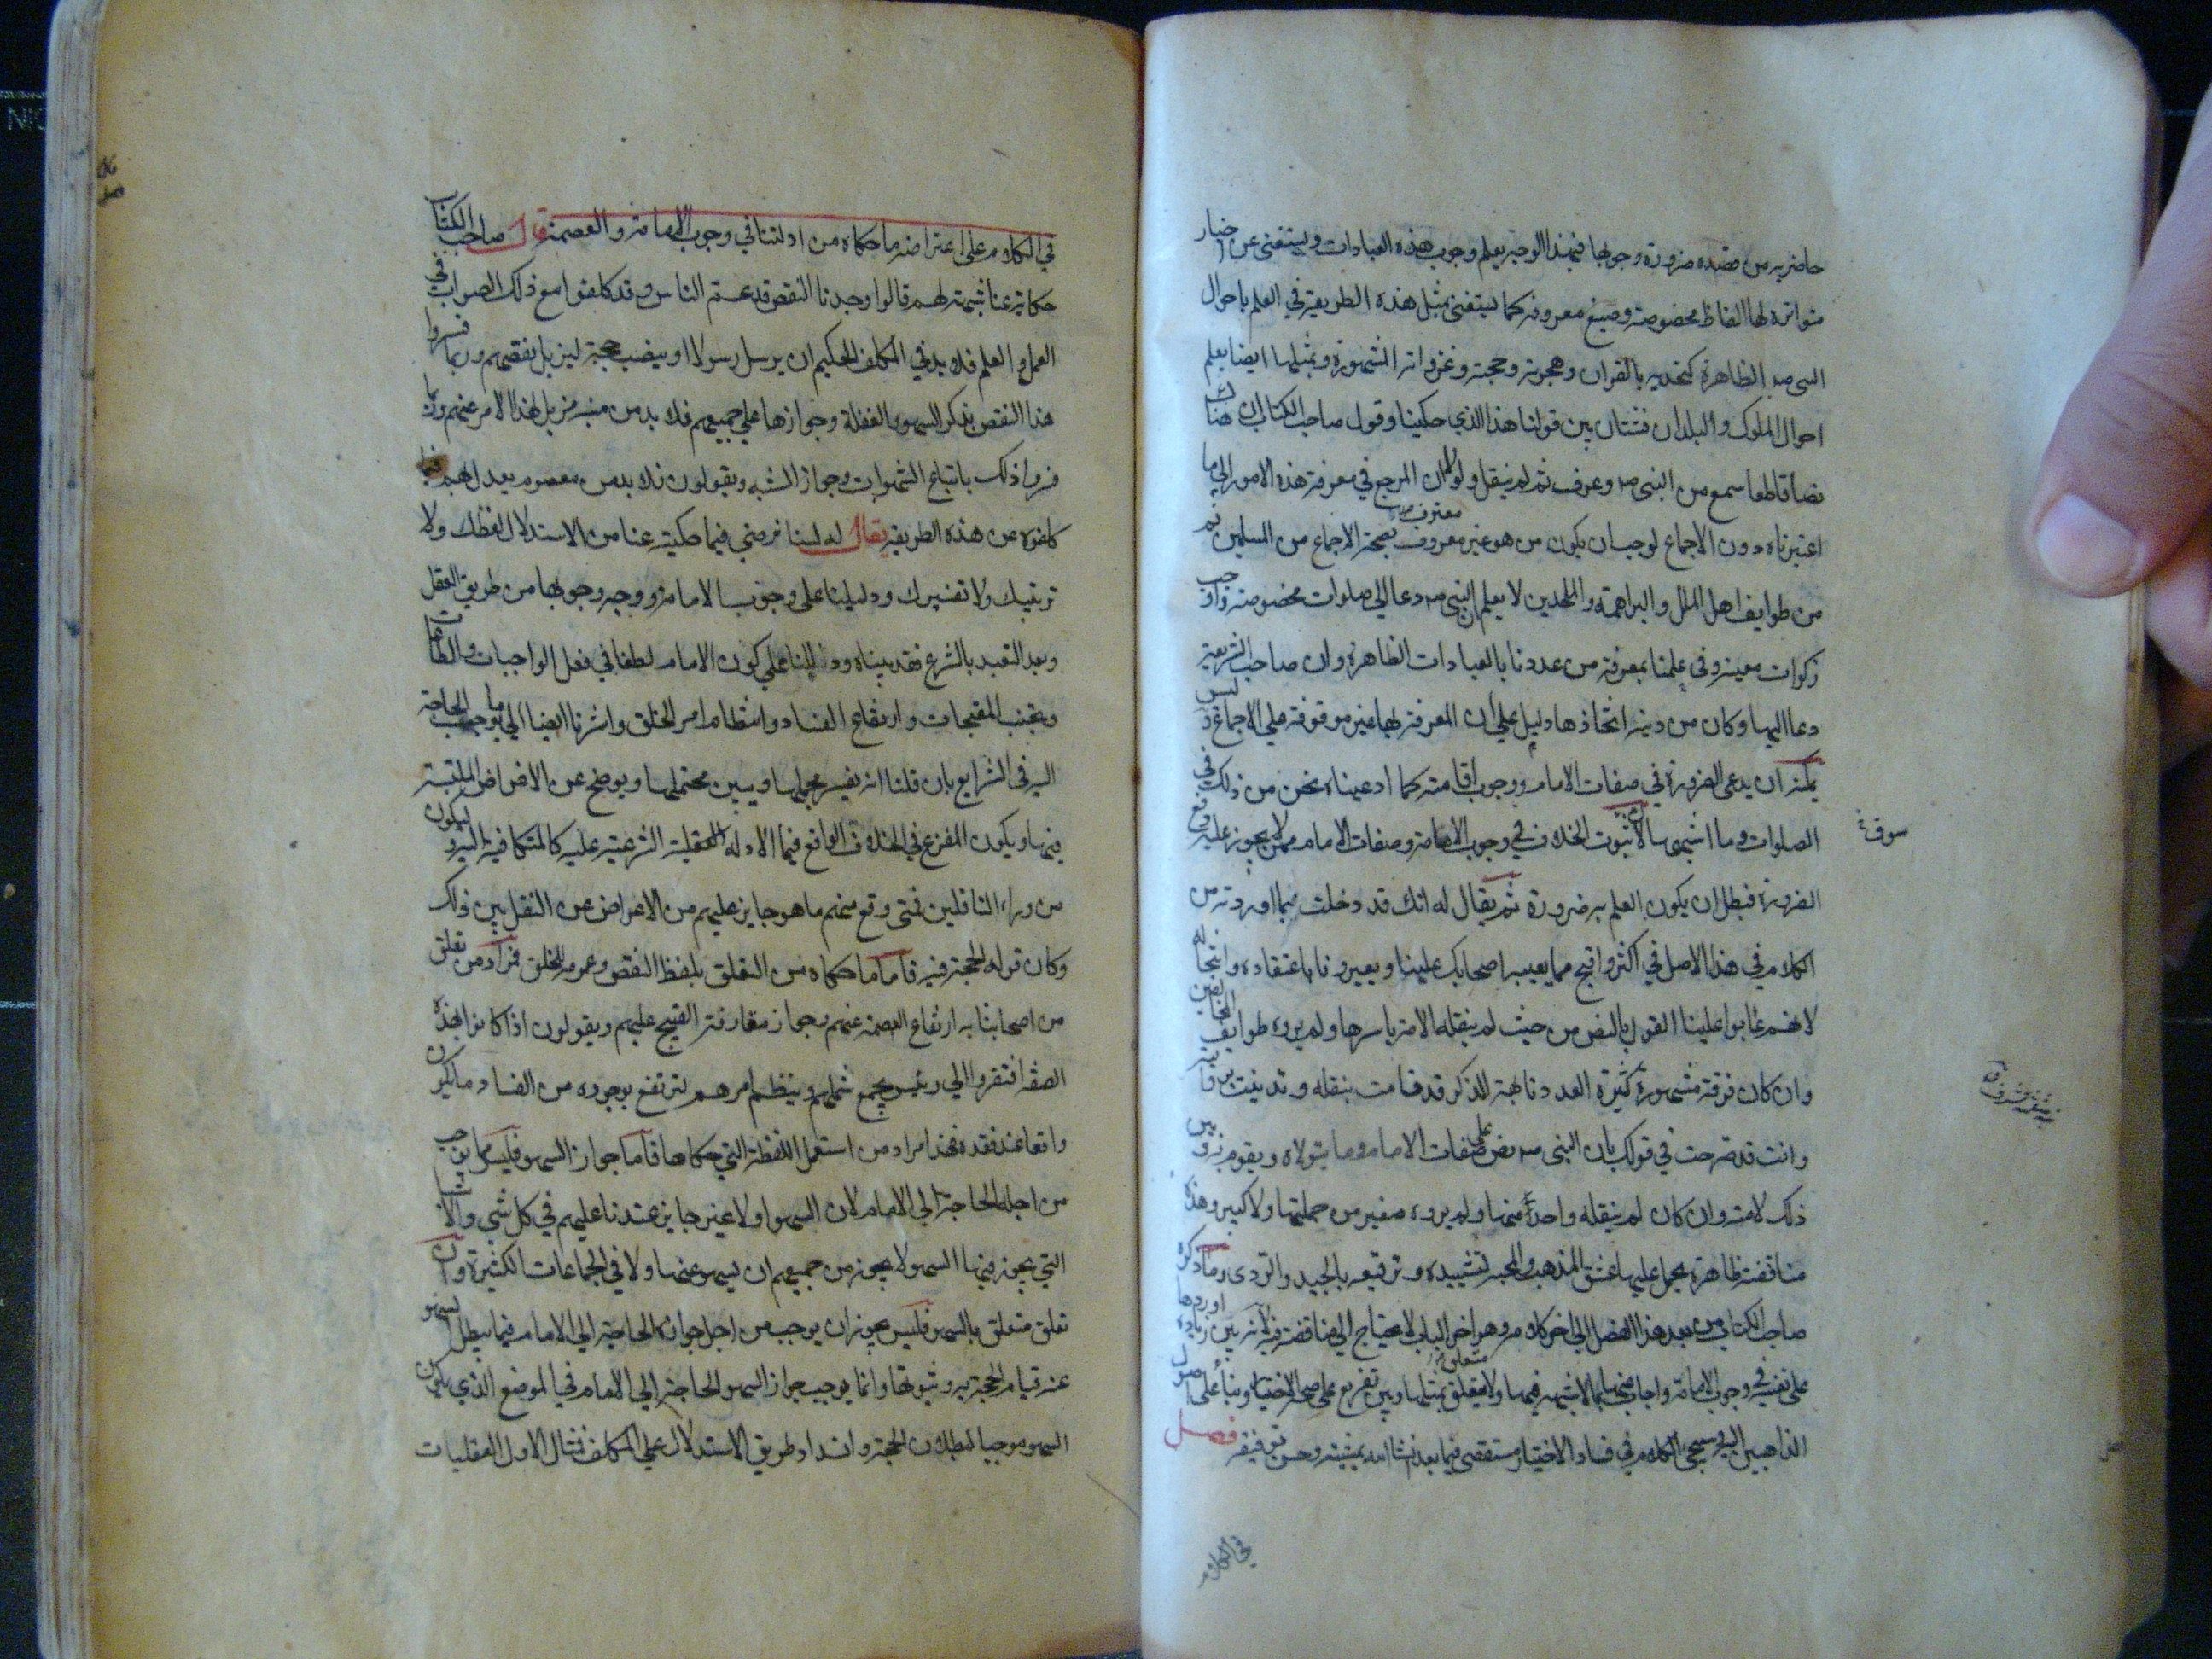 حاضريه من قصده ضرورة وجوبها فبهذا الوجه يعلم وجوب هذه العبادات ويستغنى عن اخبار
متواترة لها الفاظ مخصوصة وصيغ معروفة كما يستغنى بمثل هذه الطريقة في العلم باحوال
النبي صه الظاهرة كتحديه بالقران وهجرته وحجته وغزواته المشهورة وبمثلها ايضا يعلم
احوال الملوك والبلدان فشتان بين قولنا هذا الذي حكينا وقول صاحب الكتاب ان هناك
نصا قاطعا سمع من النبي صه وعرف ثم لم ينقل ولولا ان المرجع في معرفة هذه الامور الى ما
اعتبرناه دون الاجماع لوجب ان يكون من هو غير معروف معترف بصحة الاجماع من المسلمين ثم
من طوايف اهل الملل والبراهمة والملحدين لا يعلم ان النبي صه دعا الى صلوات مخصوصة واوجب
زكوات معينة وفي علمنا بمعرفة من عددنا بالعبادات الظاهرة وان صاحب الشريعة
دعا اليها وكان من دينه اتخاذها دليل على ان المعرفة لها غير موقوفة على الاجماع وليس
يمكنه ان يدعى الضرورة في صفات الامام ووجوب اقامته كما ادعيناه نحن من ذلك في
الصلوات وما اشبهها لان ثبوت الخلاف في وجوب الامامة وصفات الامام ممن لا يجوز عليه دفع
سوق
الضرورة فبطل ان يكون العلم به ضرورة ثم يقال له انك قد دخلت فيما اوردته من
الكلام في هذا الاصل في اكثر واقبح مما يعيبه اصحابك علينا ويعيرونا باعتقاده وانتحاله
لانهم عابوا علينا القول بالنص من حيث لم ينقله الامة باسرها ولم يروه طوايف المخالفين
وان كان فرقة مشهورة كثيرة العدد نابهة الذكر قد قامت بنقله وتدينت به
وانت قد صرحت في قولك بان النبي صه نص على صفات الامام وما يتولاه ويقوم به وبين
ذلك لامته وان كان لم ينقله واحد منها ولم يروه صغير من جملتها ولا كبير وهذه
مناقضة ظاهرة يحمل عليها عشق المذهب والمحبة لتشييده وترقيعه بالجيد والردى وما ذكره
صاحب الكتاب من بعد هذا الفصل الى اخر كلامه وهو اخر الباب لا يحتاج الى مناقضة فيه لانه بين زيادة اوردها
على نفسه في وجوب الامامة واجاب عنها بما لا شبهة فيها ولا يتعلق متعلق بمثلها وبين تفريع على صحة الاختيار وبناء على اصول
الذاهبين اليه وسيجئ الكلام في فساد الاختيار مستقصى فيما بعد انشا الله بمشيته وحسن توفيقه فصل
في الكلام
في الكلام على اعتراضه ما حكاه من ادلتنا في وجوب الامامة والعصمة قال صاحب الكتاب
حكاية عنا شبهة لهم قالوا وجدنا النقص قد عم الناس وقد كلفوا مع ذلك الصواب في
العمل والعلم فلا بد في المكلف الحكيم ان يرسل رسولا او ينصب حجة ليزيل نقصهم وربما فسروا
هذا النقص بذكر السهو والغفلة وجوازها على جميعهم فلا بد من منبه مزيل لهذا الامر عنهم وربما
فسروا ذلك باتباع الشهوات وجواز الشبه ويقولون فلا بد من معصوم يعدل بهم فيما
كلفوه عن هذه الطريقة يقال له لسنا نرضى فيما حكيته عنا من الاستدلال لفظك ولا
ترتيبك ولا تفسيرك ودليلنا على وجوب الامامة ووجه وجوبها من طريق العقل
وبعد التعبد بالشرع فقد بيناه ودللنا على كون الامام لطفا في فعل الواجبات والطاعات
وتجنب المقبحات وارتفاع الفساد وانتظام امر الخلق واشرنا ايضا الى ما يوجب الحاجة
اليه في الشرايع بان قلنا انه يفسر مجملها ويبين محتملها ويوضح عن الاغراض الملتبسة
فيها ويكون المفزع في الخلاف الواقع فيما الادلة العقلية الشرعية عليه كالمتكافية اليه وليكون
من وراء الناقلين فمتى وقع منهم ما هو جايز عليهم من الاعراض عن النقل بين ذلك
وكان قوله الحجة فيه فاما ما حكاه من التعلق بلفظ النقص وعمومه للخلق فمراد من تعلق
من اصحابنا به ارتفاع العصمة عنهم وجواز مقارفة القبيح عليهم ويقولون اذا كانوا بهذه
الصفة افتقروا الى رئيس يجمع شملهم وينظم امرهم لترتفع بوجوده من الفساد ما يكون
واقعا عند فقده فهذا مراد من استعمل اللفظة التي حكاها فاما جواز السهو فليس مما يوجب
من اجله الحاجة الى الامام لان السهو اولا غير جايز عندنا عليهم في كل شي والاشيا
التي يجوز فيها السهو لا يجوز من جميعهم ان يسهو عنها ولا في الجماعات الكثيرة وان
تعلق متعلق بالسهو فليس يجوز ان يوجب من اجل جوازه الحاجة الى الامام فيما يبطل السهو
عنه قيام الحجة به وثبوتها وانما يوجب جواز السهو الحاجة الى الامام في الموضع الذي يكون
السهو موجبا لبطلان الحجة وانسداد طريق الاستدلال على المكلف مثال الاول العقليات